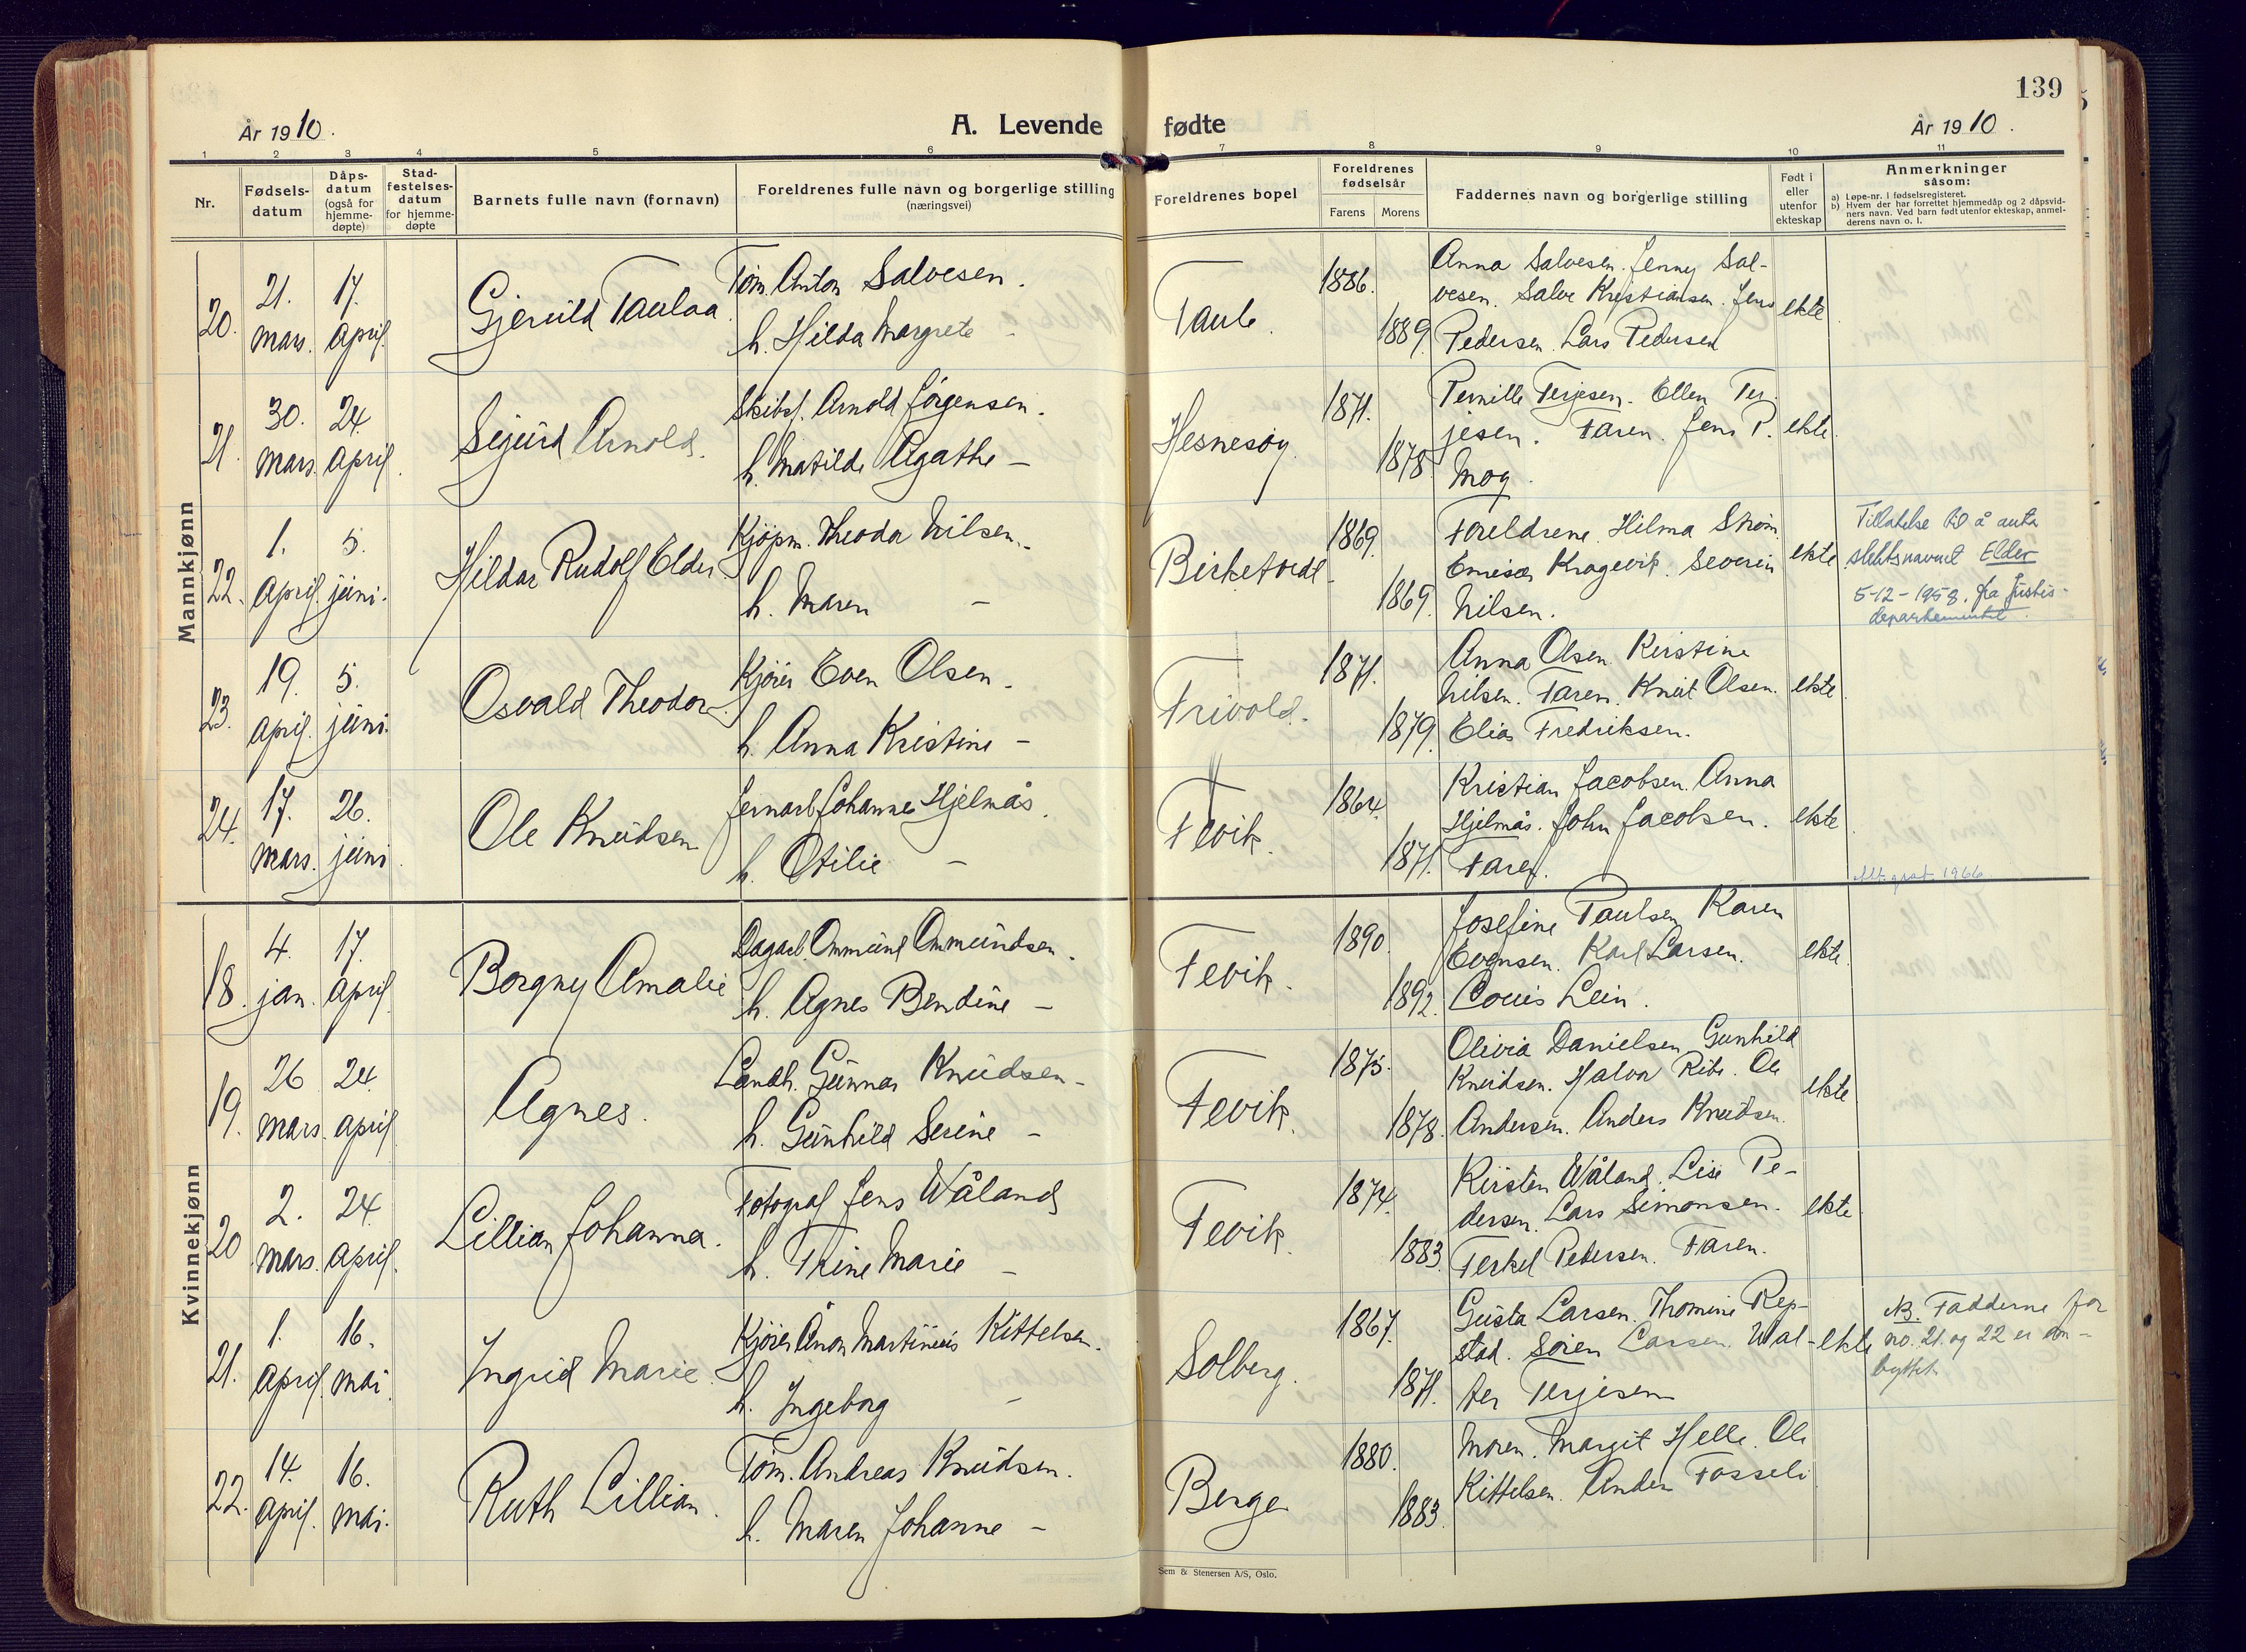 139
År 1910.
A. Levende fødte
År 1910.
1 2 3 4 5 6 7 8 9 10 11
Nr.
Fødsels-
datum
Dåps-
datum
(også for
hjemme-
døpte)
Stad-
festelses-
datum
for hjemme-
døpte
Barnets fulle navn (fornavn)
Foreldrenes fulle navn og borgerlige stilling
(næringsvei)
Foreldrenes bopel
Foreldrenes
fødselsår
Farens Morens
Faddernes navn og borgerlige stilling
Født i
eller
utenfor
ekteskap
Anmerkninger
såsom:
a) Løpe-nr. i fødselsregisteret.
b) Hvem der har forrettet hjemmedåp og 2 dåpsvid-
ners navn. Ved barn født utenfor ekteskap, anmel-
derens navn o. l.
Mannkjønn
20.
21. mars.
17. april.
Gjeruld Taulaa
Tøm. Anton Salvesen.
h. Hilda Margrete -
Taule.
1886.
1889.
Anna Salvesen. Jenny Sal-
vesen. Salve Kristiansen. Jens
Pedersen. Lars Pedersen
ekte
21.
30. mars.
24. april.
Sigurd Arnold.
Skibsf. Arnold Jörgensen.
h. Matilde Agathe -
Hesnesøy.
1871.
1878.
Pernille Terjesen. Ellen Ter-
jesen. Faren. Jens P.
Moy.
ekte.
22.
1. april.
5. juni.
Hildar Rudolf Elder.
Kjöpm. Theodor Nilsen.
h. Maren -
Birketvedt
1869.
1869.
Foreldrene. Hilma
Kragevik. Severin
Nilsen.
ekte
Tillatelse til å anta
slektsnavnet Elder
5-12-1958. fra Justis-
departementet.
23.
19. april.
5. juni.
Osvald Theodor.
Kjører Even Olsen.
h. Anna Kristine -
Frivold.
1871.
1879.
Anna Olsen. Kristine
Nilsen. Faren. Knut Olsen.
Elias Fredriksen.
ekte.
24.
17. mars.
26. juni.
Ole Knudsen
Jernarb. Johannes Hjelmås.
h. Otilie -
Fevik.
1864.
1871.
Kristian Jacobsen. Anna
Hjelmås. John Jacobsen.
Faren.
ekte.
1966
Kvinnekjønn
18.
4. jan.
17. april.
Borgny Amalie
Dagarb. Ommund Ommundsen.
h. Agnes Bendine -
Fevik.
1890.
1892.
Josefine Paulsen. Karen
Evensen. Karl Larsen.
Louis Lein.
ekte.
19.
26 mars.
24. april.
Agnes.
Landh. Gunnar Knudsen-
h. Gunhild Serine -
Fevik.
1875.
1878.
Olivia Danielsen. Gunhild
Knudsen. Halvor Ribe. Ole
Andersen. Anders Knudsen.
ekte
20
2. mars.
24. april.
Lillian Johanna.
Fotograf Jens Wåland
h. Trine Marie -
Fevik.
1874.
1883.
Kirsten Wåland. Lise Pe-
dersen. Lars Simonsen.
Terkel Pedersen. Faren.
ekte.
21.
1. april.
16. mai.
Ingrid Marie.
Kjører Anon Martinius Kittelsen.
h. Ingeborg -
Solberg.
1867.
1871.
Gusta Larsen. Thomine Rep-
stad. Sören Larsen. Wal-
ter Terjesen
ekte
NB. Fadderne for
no. 21. og 22 er om-
byttet.
22.
14. april.
16. mai.
Ruth Lillian.
Tøm. Andreas Knudsen.
h. Maren Johanne -
Berge
1880.
1883.
Moren. Margit Helle. Ole
Kittelsen. Anders Fosseli
Sem & Stenersen A/S, Oslo.